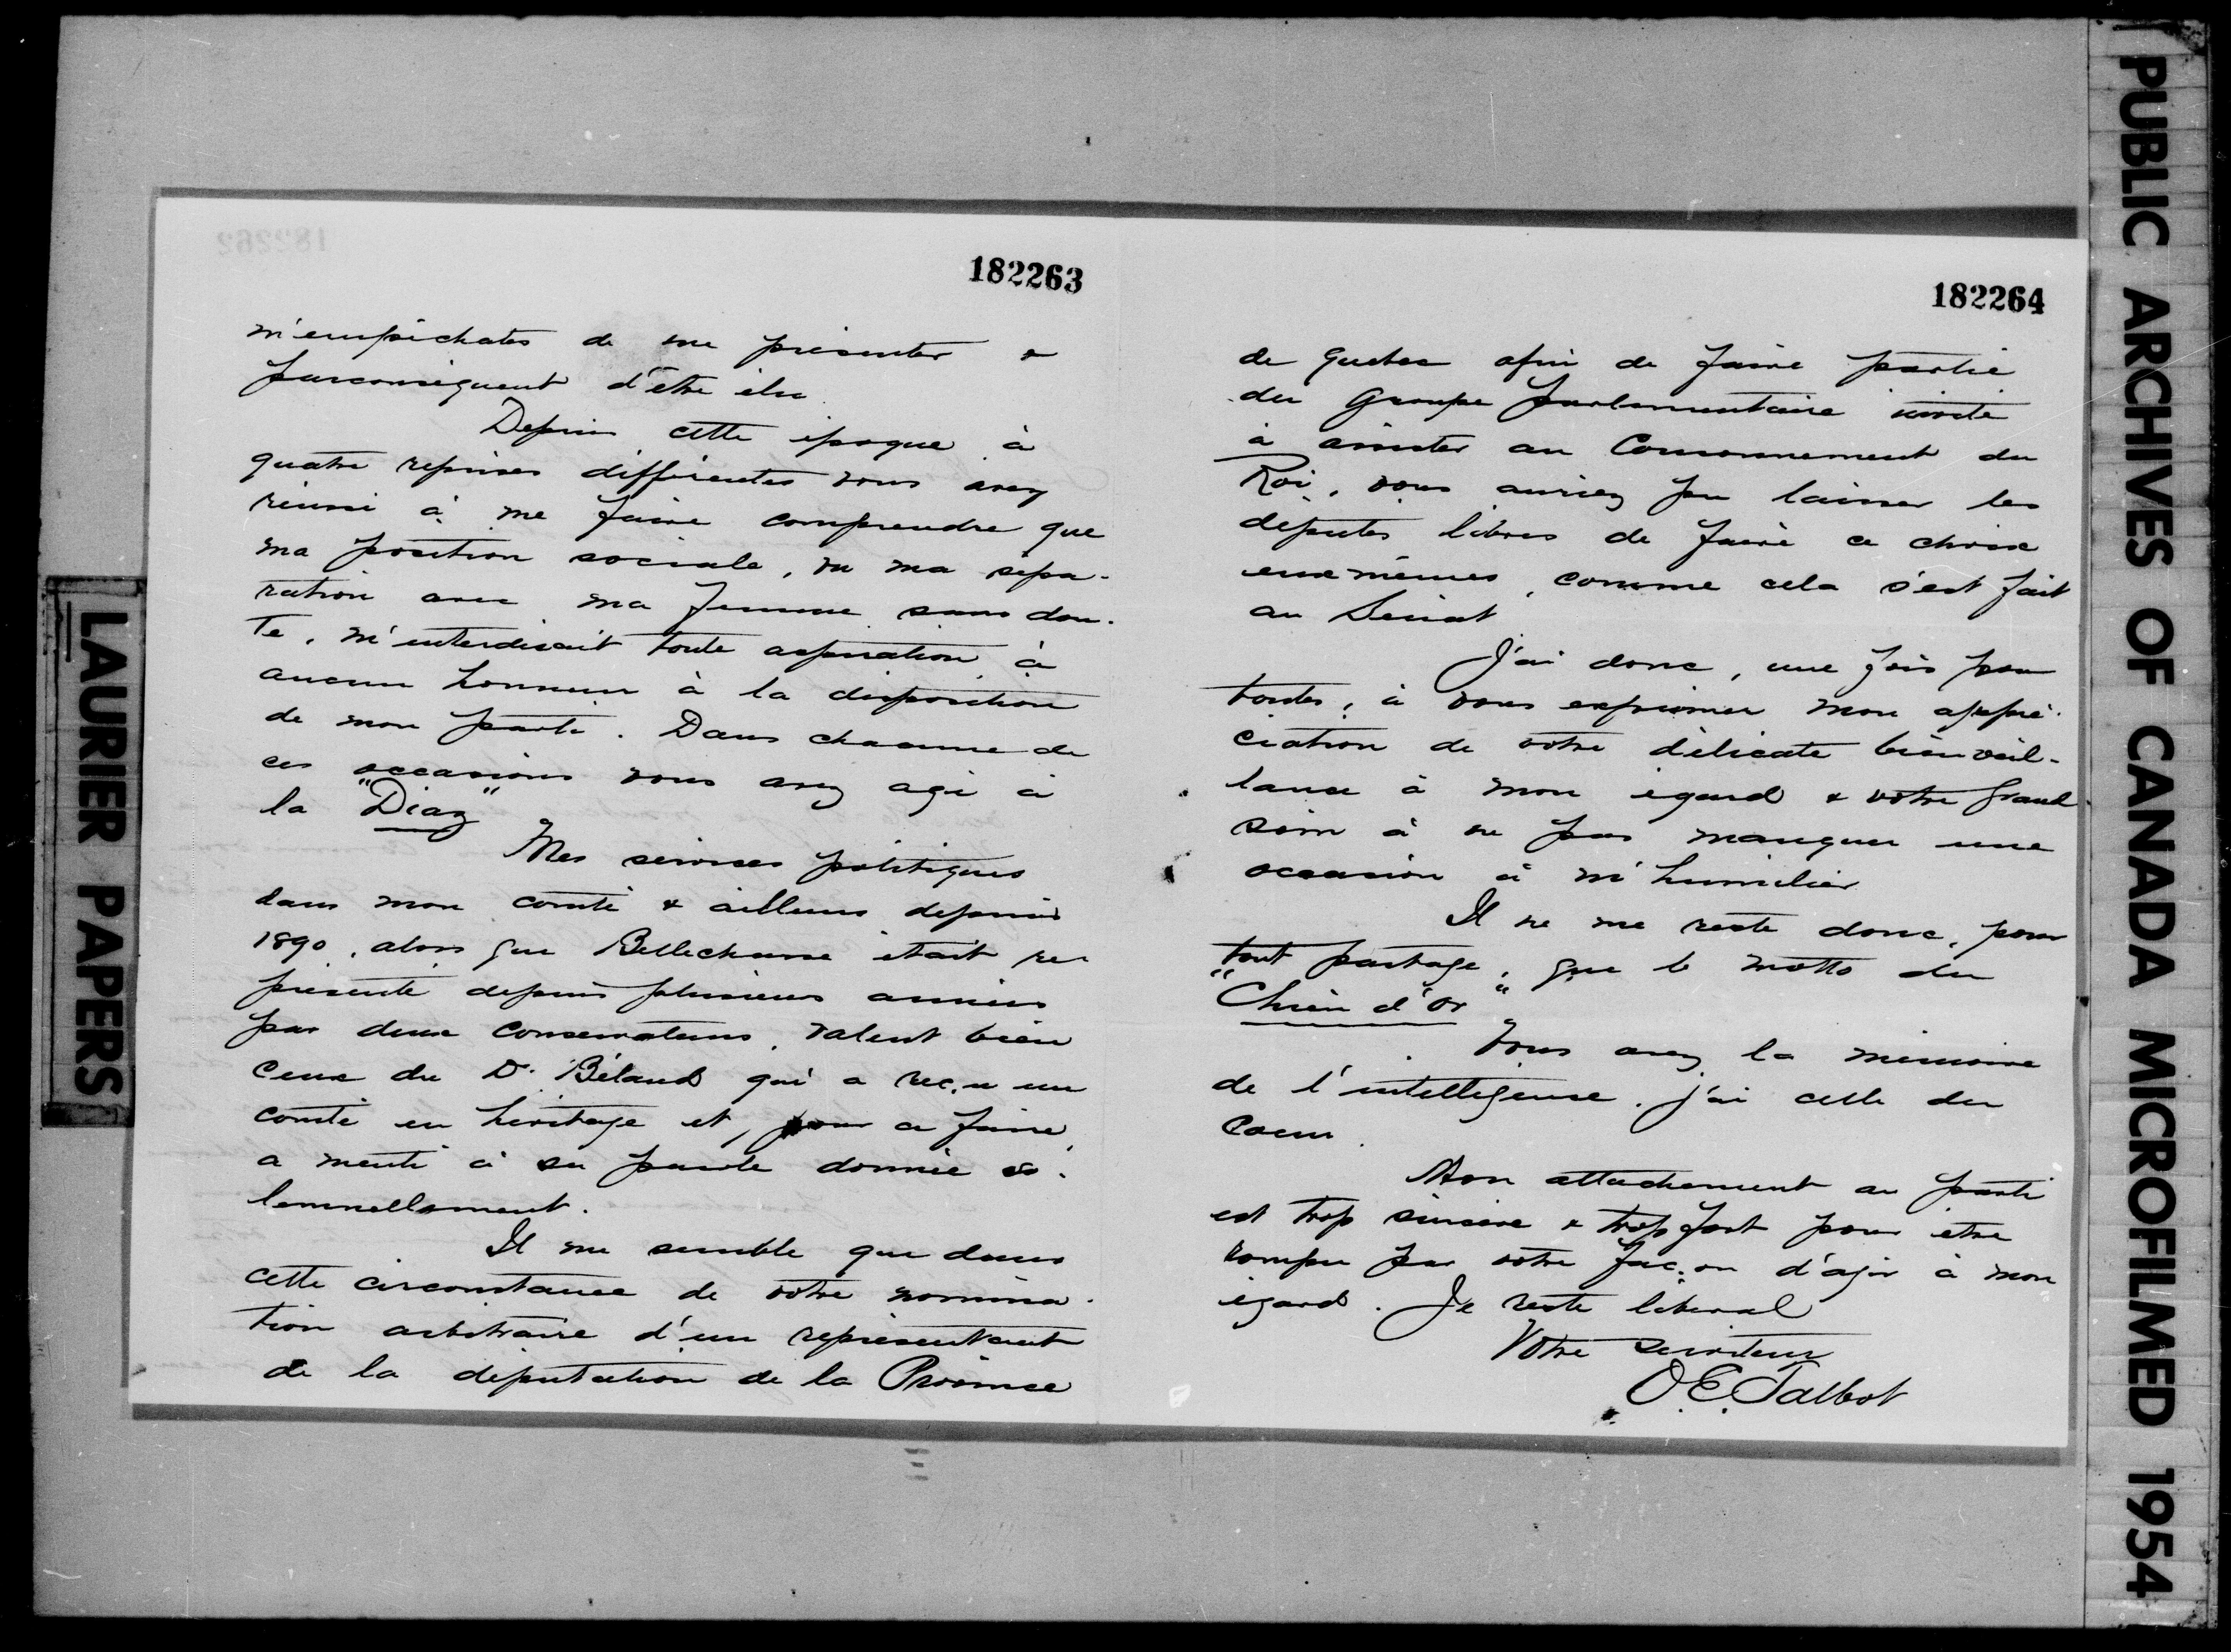 182263
m'empêchates de me présenter &
parconséquent d'être élu.
Depuis cette époque à
quatre reprises différentes vous avez
réussi à me faire comprendre que
ma position sociale, vu ma sépa-
ration avec ma femme sans dou-
te, m'interdisait toute aspiration à
aucun honneur à la disposition
de mon parti. Dans chacune de
ces occasions vous avez agi à
la "Diaz"
Mes services politiques
dans mon comté & ailleurs depuis
1890, alors que Bellechasse était re-
présenté depuis plusieurs années
par deux conservateurs, valent bien
ceux du Dr. Béland qui a reçu un
comté en héritage et, pour ce faire,
a menti à sa parole donnée so-
lemnellement.
Il me semble que dans
cette circonstance de votre nomina-
tion arbitraire d'un représentant
de la députation de la Province
182264
de Quebec afin de faire partie
du Groupe parlementaire invité
à assister au Couronnement du
Roi, vous auriez pu laisser les
députés libres de faire ce choix
eux mêmes, comme cela s'est fait
au Sénat
J'ai donc, une fois pour
toutes, à vous exprimer mon appré-
ciation de votre délicate bienveil-
lance à mon égard & votre grand
soin à ne pas manquer une
occasion à m'humilier
Il ne me reste donc, pour
tout partage, que le motto du
"Chien d'Or"
Vous avez la mémoire
de l'intelligence, j'ai celle du
Coeur.
Mon attachement au parti
est trop sincère & trop fort pour être
rompu par votre façon d'agir à mon
égard. Je reste libéral
Votre serviteur
O. E. Talbot
LAURIER PAPERS
PUBLIC ARCHIVES OF CANADA MICROFILMED 1954